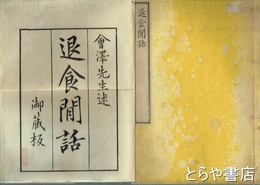 會澤先生述
退食閒話
御藏板
退食閒話
とらや書店